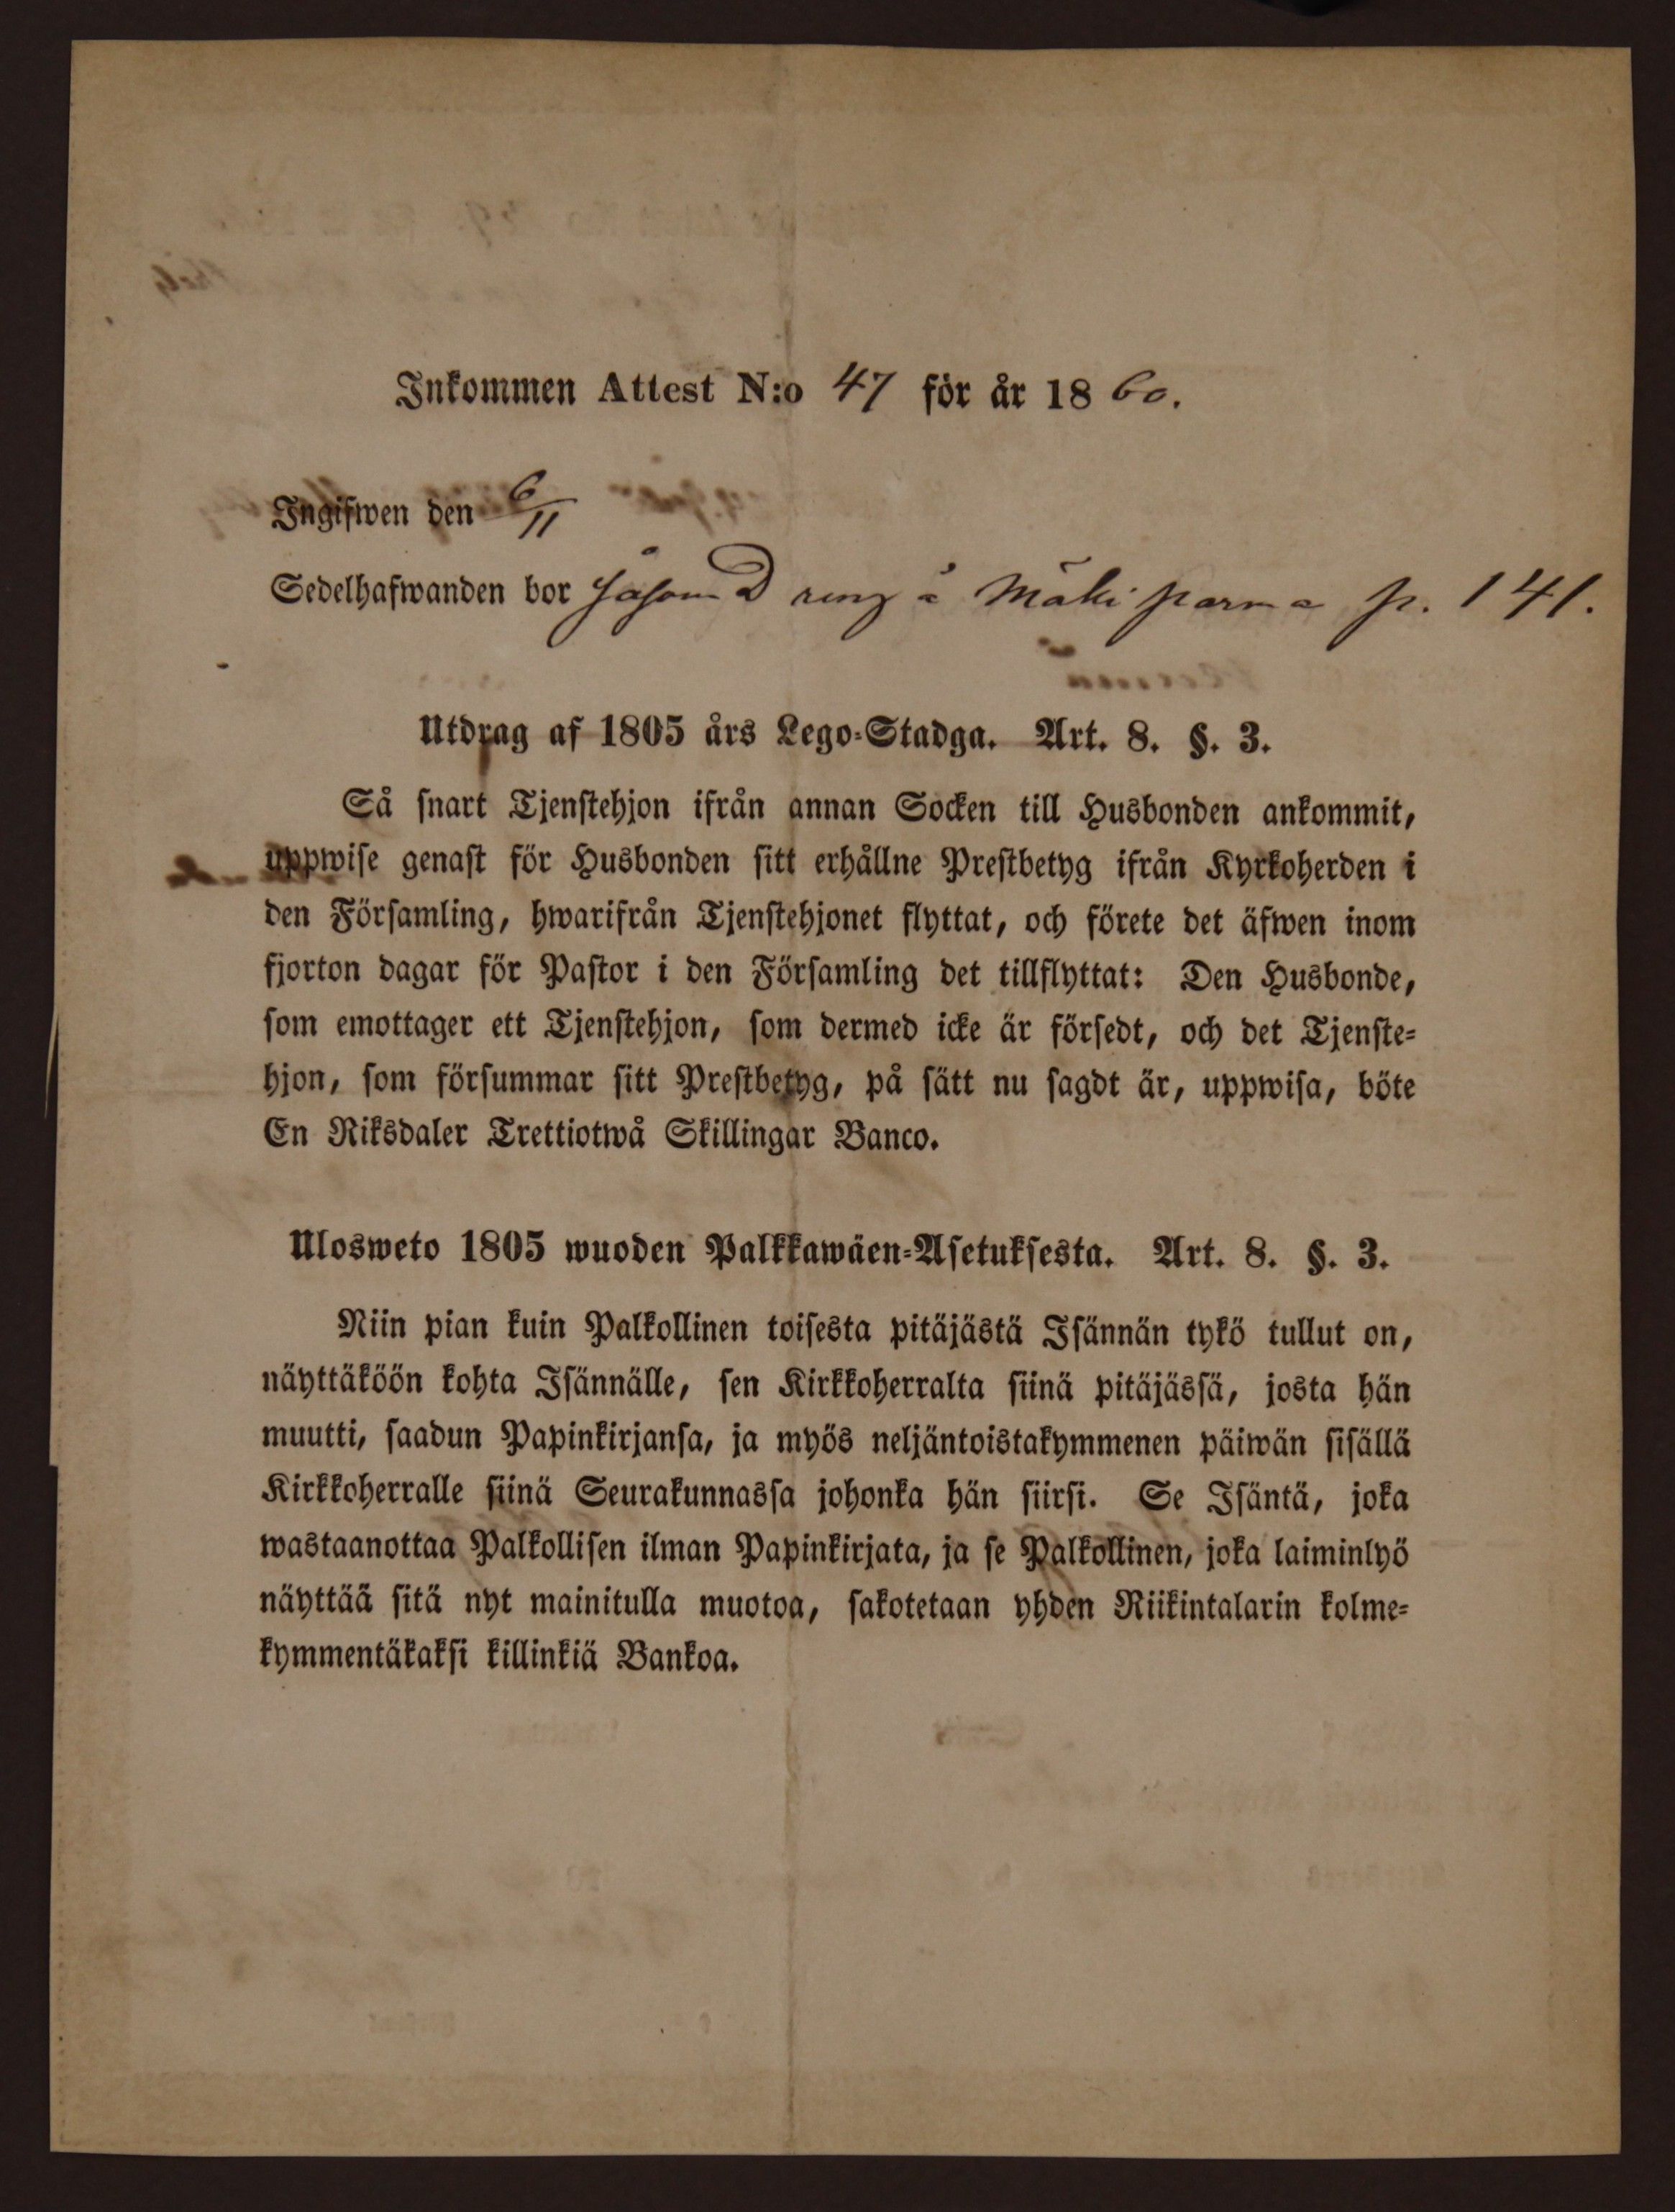 Inkommen Attest N:o 47 för år 1860.
Ingifwen den 6/11
Sedelhafwanden bor såsom Dreng å Mäkiparma p. 141.
Utdrag af 1805 års Lego-Stadga. Art. 8. §. 3.
Så snart Tjenstehjon ifrån annan Socken till Husbonden ankommit,
uppwise genast för Husbonden sitt erhållne Prestbetyg ifrån Kyrkoherden i
den Församling, hwarifrån Tjenstehjonet flyttat, och förete det äfwen inom
fjorton dagar för Pastor i den Församling det tillflyttat: Den Husbonde,
som emottager ett Tjenstehjon, som dermed icke är försedt, och det Tjenste-
hjon, som försummar sitt Prestbetyg, på sätt nu sagdt är, uppwisa, böte
En Riksdaler Trettiotwå Skillingar Banco.
Ulosweto 1805 wuoden Palkkawäen-Asetuksesta. Art. 8. §. 3.
Niin pian kuin Palkollinen toisesta pitäjästä Isännän tykö tullut on,
näyttäköön kohta Isännälle, sen Kirkkoherralta siinä pitäjässä, josta hän
muutti, saadun Papinkirjansa, ja myös neljäntoistakymmenen päiwän sisällä
Kirkkoherralle siinä Seurakunnassa johonka hän siirsi. Se Isäntä, joka
wastaanottaa Palkollisen ilman Papinkirjata, ja se Palkollinen, joka laiminlyö
näyttää sitä nyt mainitulla muotoa, sakotetaan yhden Riikintalarin kolme-
kymmentäkaksi killinkiä Bankoa.